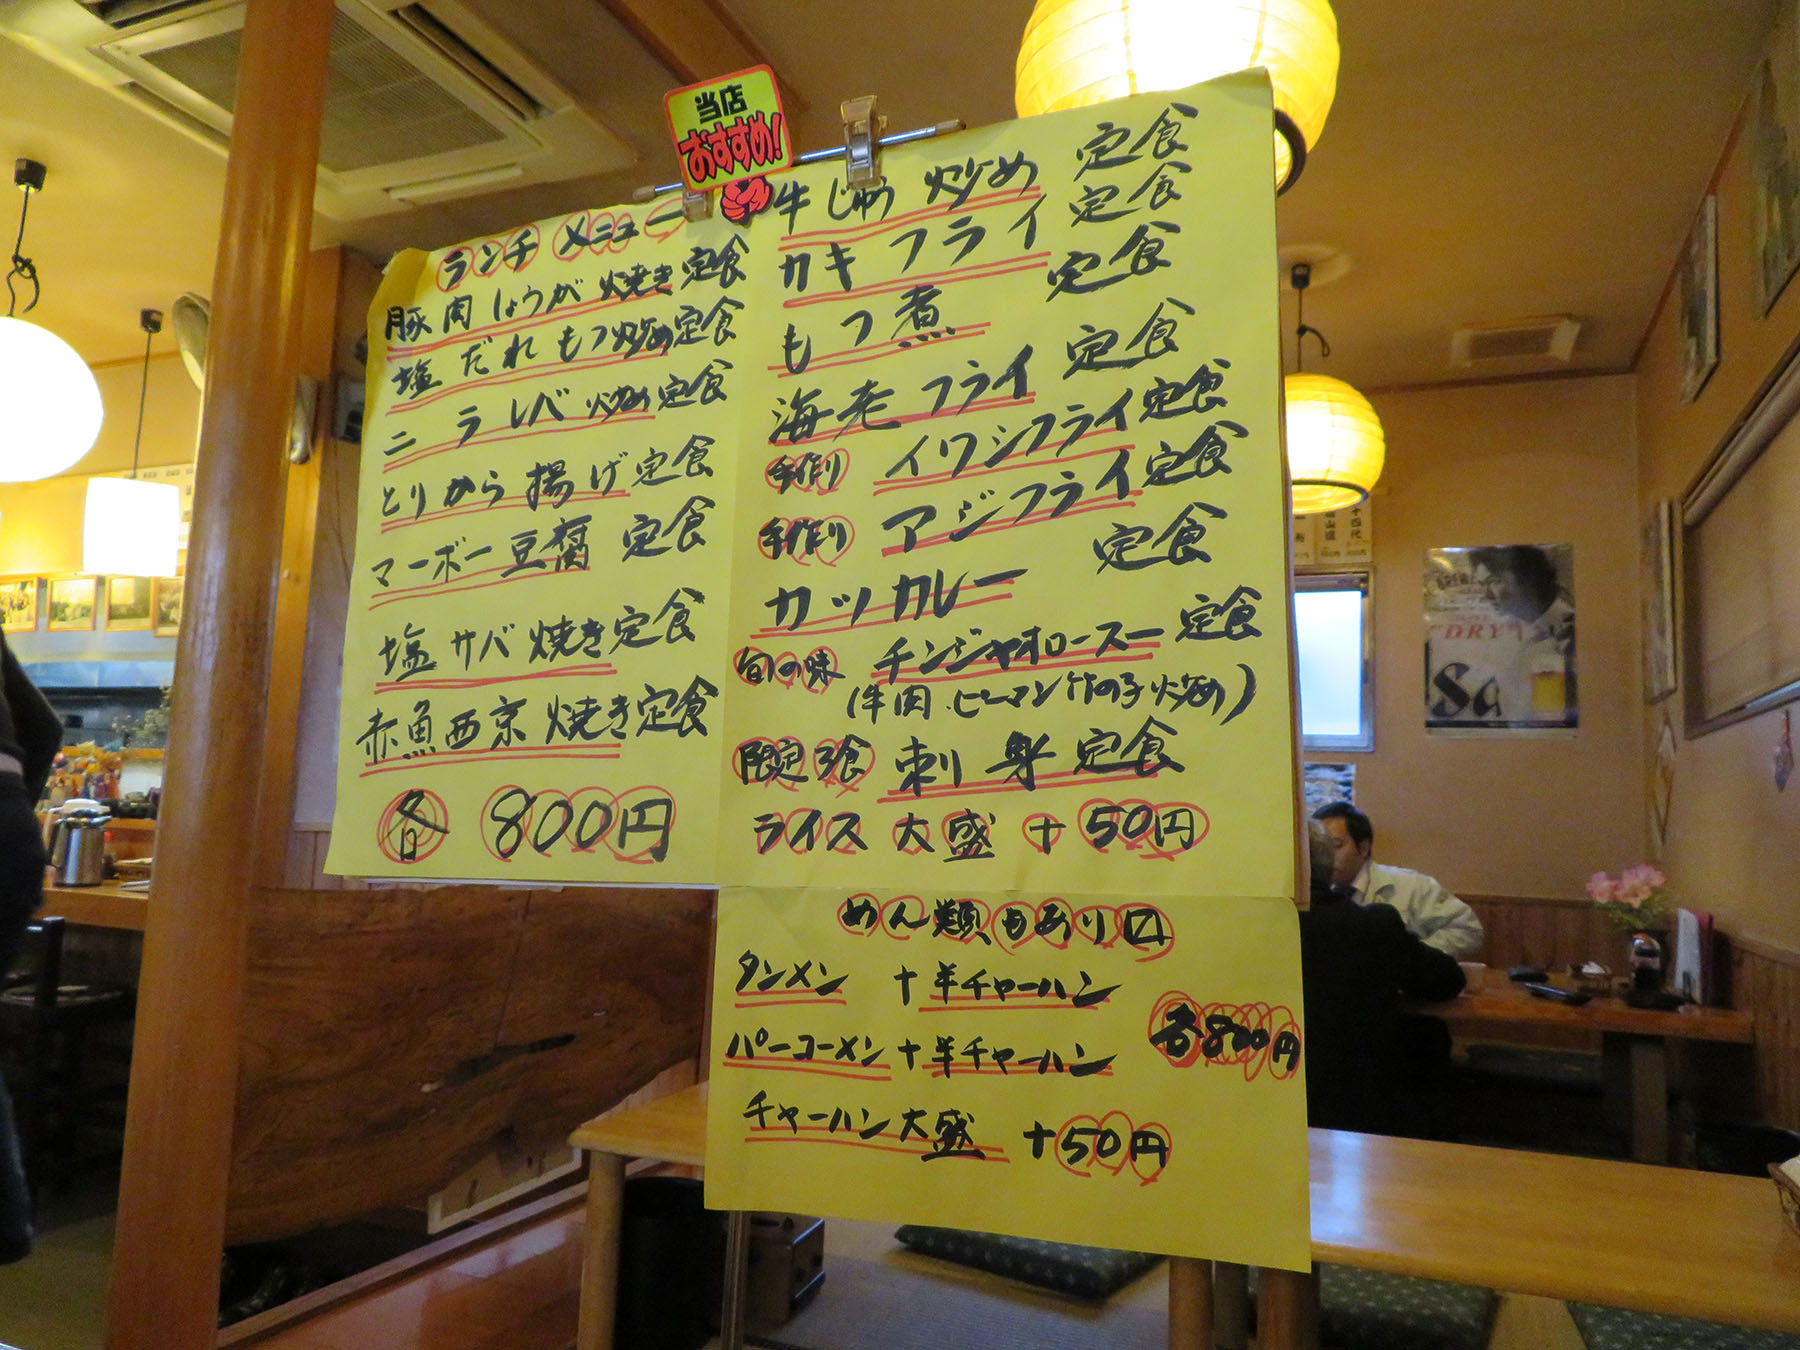 当店
おすすめ!
ランチメニュー
豚肉しょうが焼き定食
塩だれもつ炒め定食
ニラレバ炒め定食
とりから揚げ定食
マーボー豆腐 定食
塩サバ焼き定食
赤魚西京焼き定食
各 800円
牛じゅう炒め 定食
カキフライ 定食
もつ煮 定食
海老フライ 定食
手作り イワシフライ定食
手作り アジフライ定食
カツカレー 定食
旬の味 チンジャオロースー 定食
(牛肉.ピーマン竹の子炒め)
限定3食 刺身定食
ライス大盛+50円
めん類もあり〼
タンメン +半チャーハン
パーコーメン+半チャーハン
各800円
チャーハン大盛 +50円
十四代
"DRY"